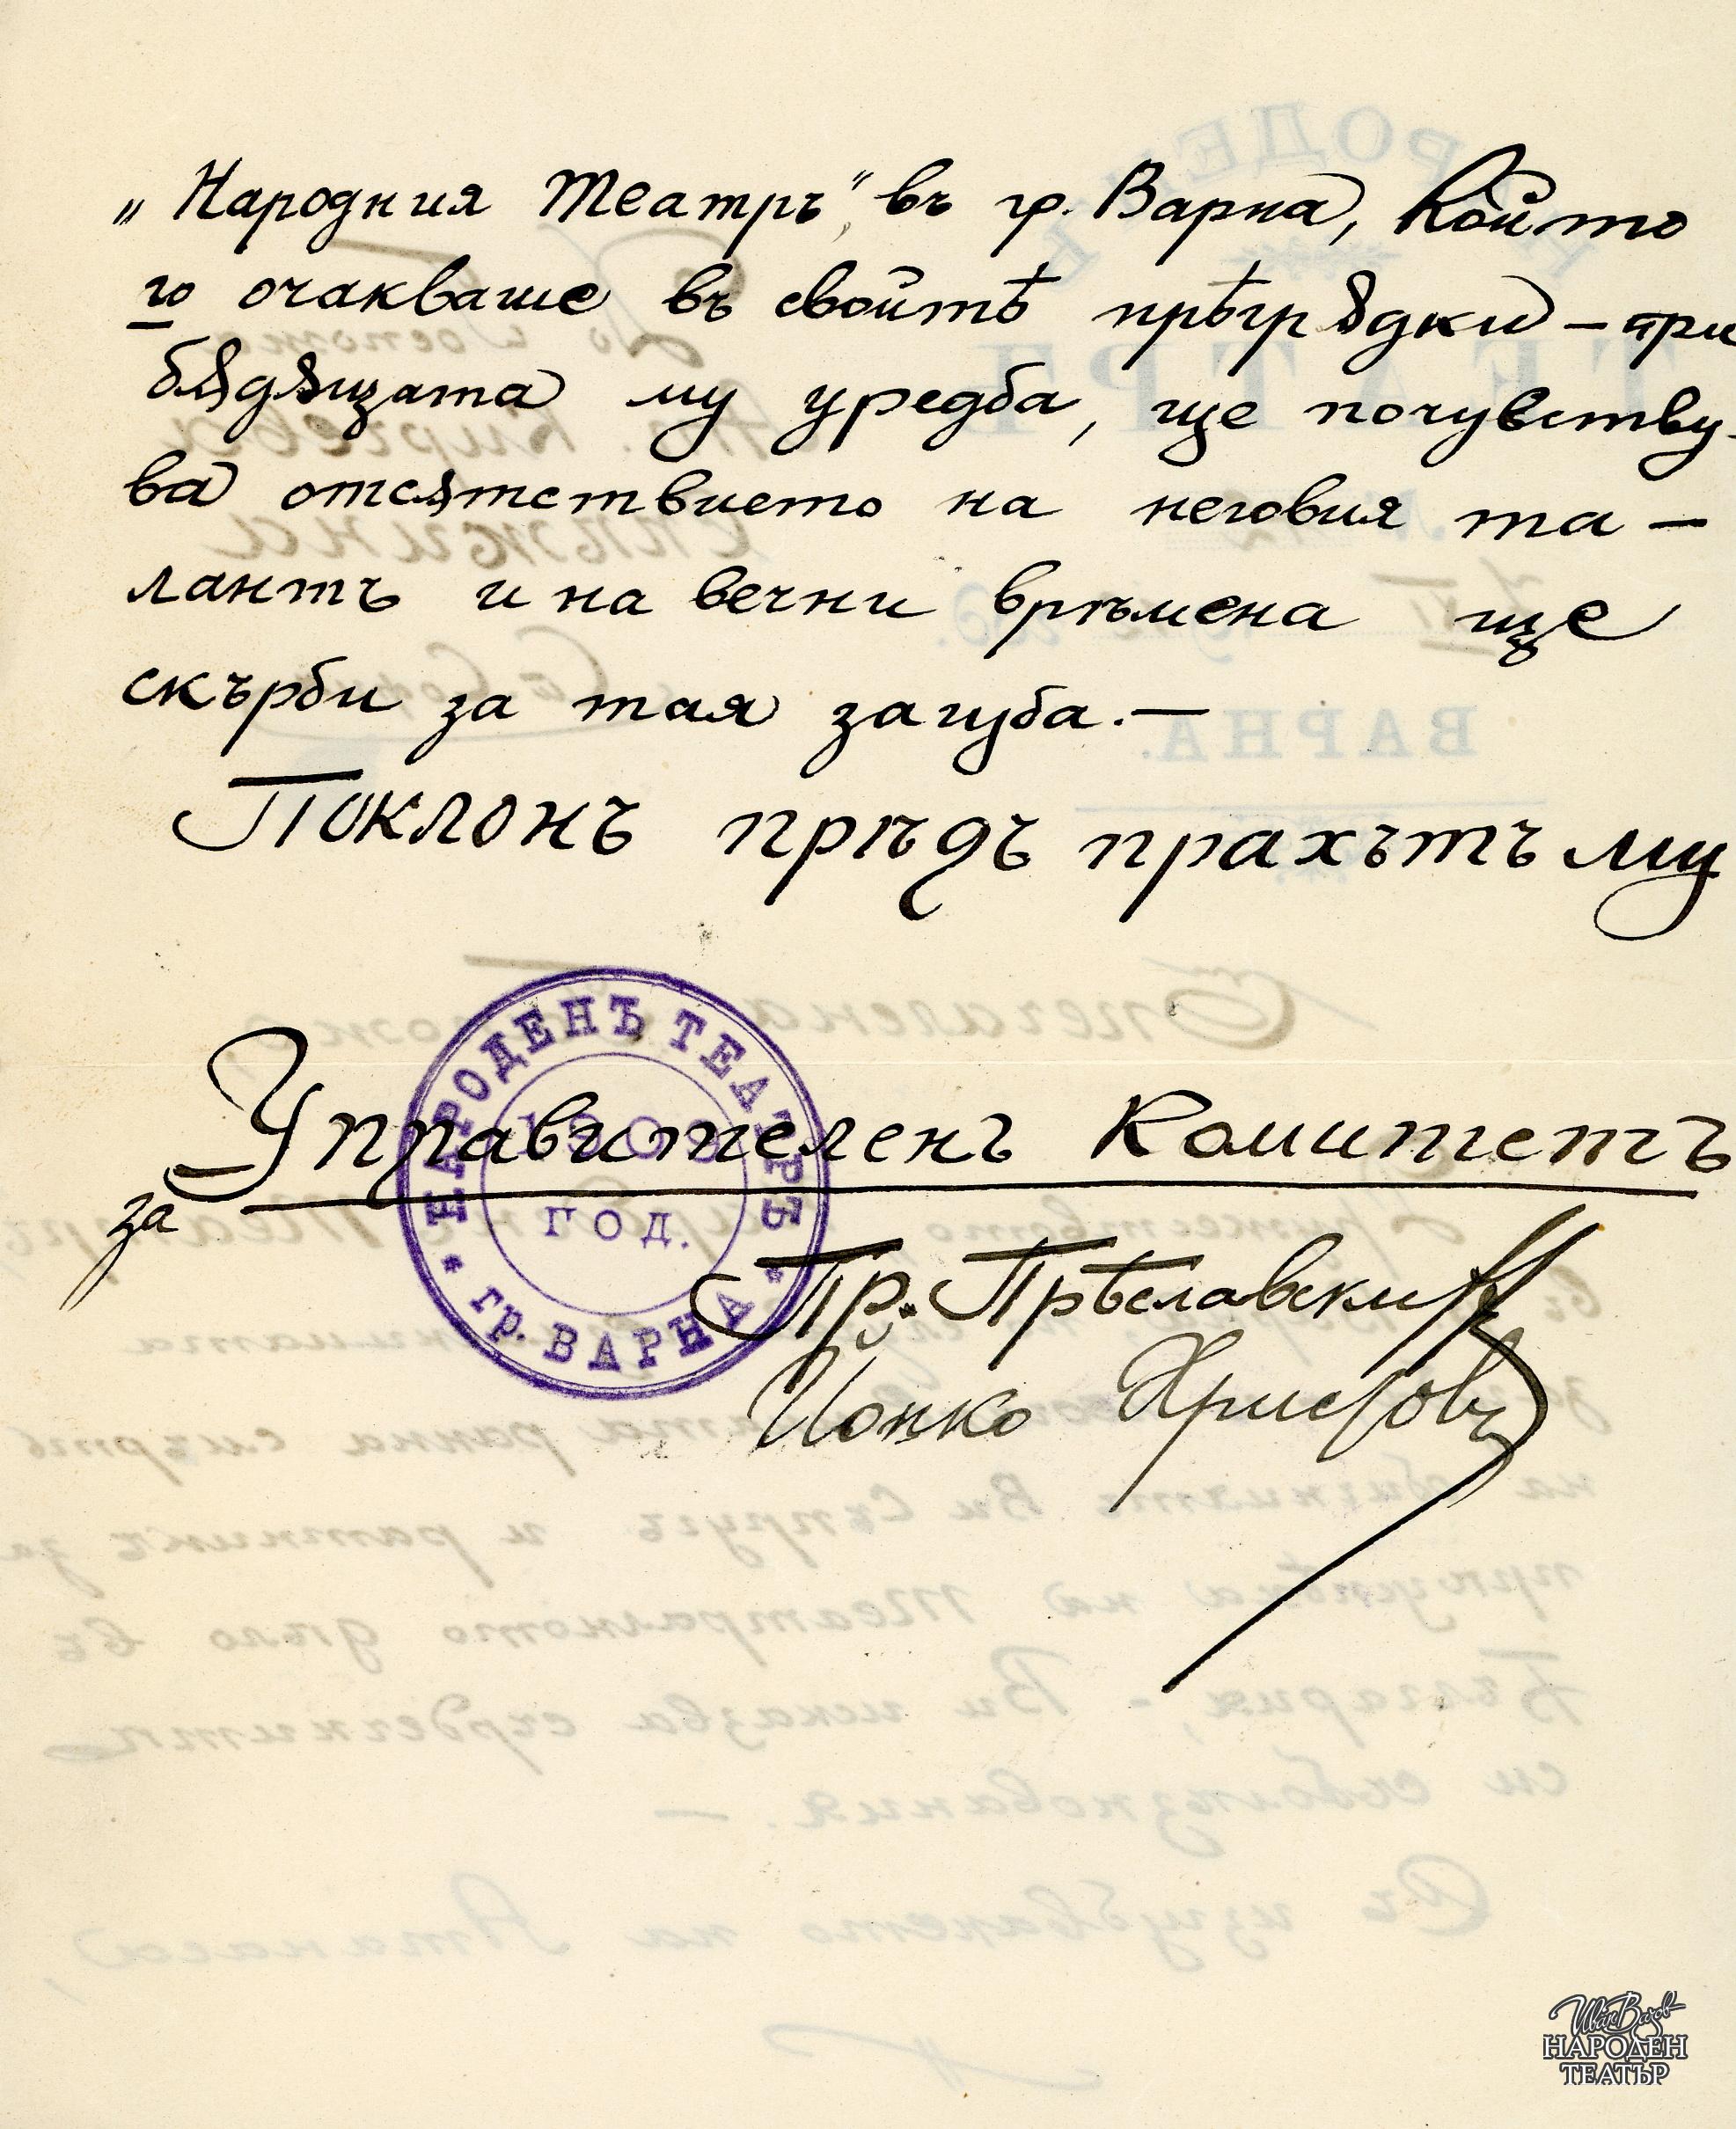 „Народния Театръ" въ гр. Варна, който
го очакваше въ свойтѣ прѣгрѫдки – при
бѫдѫщата му уредба, ще почувству-
ва отсѫтствието на неговия та –
лантъ и на вечни врѣмена ще
скърби за тая загуба. —
Поклонъ прѣдъ прахътъ му
Управителенъ Комитетъ
за
Пр. Прѣславски
Йонко Христовъ
НАРОДЕНЪ ТЕАТЪРЪ
ГОД.
* гр. ВАРНА *
Иван Вазов
НАРОДЕН
ТЕАТЪР